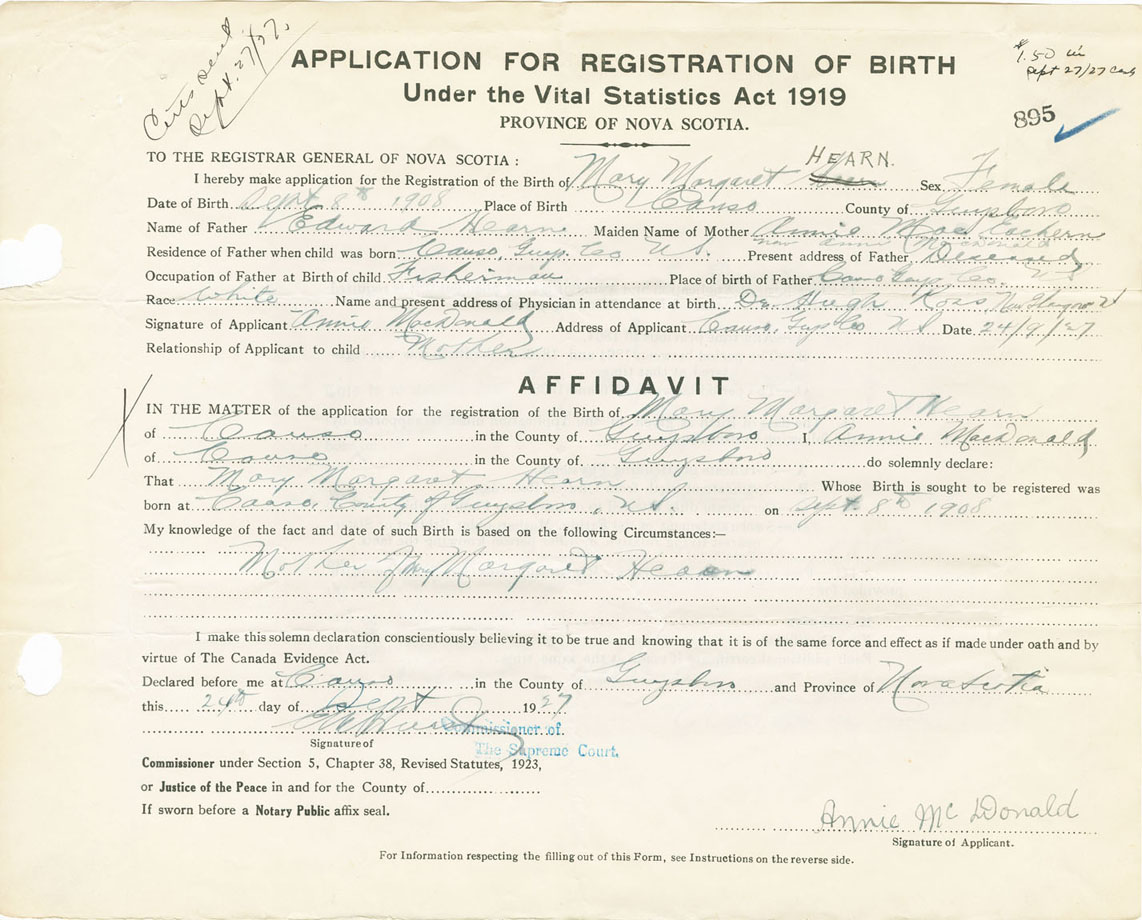 Certs Sent
Sept. 27/27.
$1.50 in
Sept 27/27 Cash
895
APPLICATION FOR REGISTRATION OF BIRTH
Under the Vital Statistics Act 1919
PROVINCE OF NOVA SCOTIA.
TO THE REGISTRAR GENERAL OF NOVA SCOTIA :
HEARN.
I hereby make application for the Registration of the Birth of Mary Margaret Sex Female
Date of Birth Sept. 8th 1908 Place of Birth Canso County of Guysboro
Name of Father Edward Hearn Maiden Name of Mother Annie MacEachern
now Annie McDonald
Residence of Father when child was born Canso, Guys. Co N.S. Present address of Father Deceased
Occupation of Father at Birth of child Fisherman Place of birth of Father Canso Guys. Co. N.S.
Race White Name and present address of Physician in attendance at birth Dr. Hugh Ross New Glasgow
Signature of Applicant Annie MacDonald Address of Applicant Canso, Guys Co N.S. Date 24/9/27.
Relationship of Applicant to child Mother
AFFIDAVIT
IN THE MATTER of the application for the registration of the Birth of Mary Margaret Hearn
of Canso in the County of Guysboro I, Annie MacDonald
of Canso in the County of Guysboro do solemnly declare:
That Mary Margaret Hearn Whose Birth is sought to be registered was
born at Canso, County of Guysboro, N.S. on Sept. 8th 1908
My knowledge of the fact and date of such Birth is based on the following Circumstances:—
Mother of Mary Margaret Hearn
I make this solemn declaration conscientiously believing it to be true and knowing that it is of the same force and effect as if made under oath and by
virtue of The Canada Evidence Act.
Declared before me at Canso in the County of Guysboro and Province of Nova Scotia
this 24th day of Sept 1927
Commissioner of.
The Supreme Court.
Signature of
Commissioner under Section 5, Chapter 38, Revised Statutes, 1923,
or Justice of the Peace in and for the County of
If sworn before a Notary Public affix seal.
Annie McDonald
Signature of Applicant.
For Information respecting the filling out of this Form, see Instructions on the reverse side.